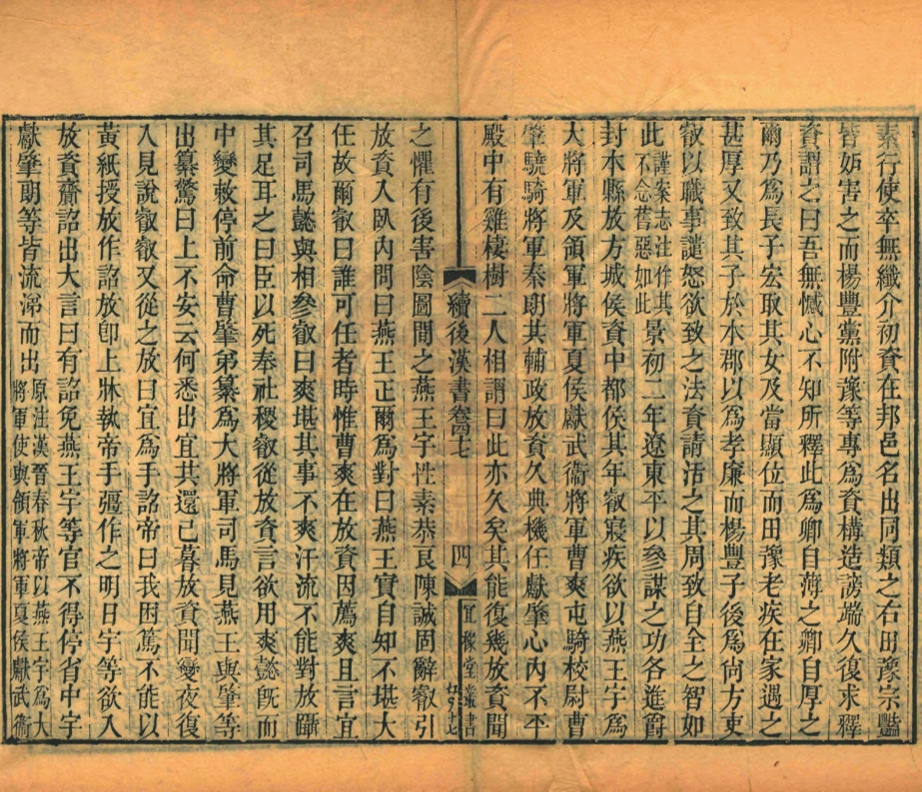 素行使卒無纖介初資在邦邑名出同類之右田豫宗豔
皆妬害之而楊豐黨附豫等專為資構造謗端久復求釋
資謂之曰吾無憾心不知所釋此為卿自薄之卿自厚之
爾乃為長子宏取其女及當顯位而田豫老疾在家遇之
甚厚又致其子於本郡以為孝廉而楊豐子後為尙方吏
叡以職事譴怒欲致之法資請活之其周致自全之智如
此謹案志注作其不念舊惡如此景初二年遼東平以參謀之功各進爵
封本縣放方城侯資中都侯其年叡寢疾欲以燕王宇為
大將軍及領軍將軍夏侯獻武衞將軍曹爽屯騎校尉曹
肇驍騎將軍秦朗其輔政放資久典機任獻肇心內不平
殿中有雞棲樹二人相謂曰此亦久矣其能復幾放資聞
續後漢書卷四七
四
宜稼堂叢書
之懼有後害陰圖間之燕王宇性素恭良陳誠固辭叡引
放資入臥內問曰燕王正爾為對曰燕王實自知不堪大
任故爾叡曰誰可任者時惟曹爽在放資因薦爽且言宜
召司馬懿與相參叡曰爽堪其事不爽汗流不能對放躡
其足耳之曰臣以死奉社稷叡從放資言欲用爽懿旣而
中變敕停前命曹肇弟纂為大將軍司馬見燕王與肇等
出纂驚曰上不安云何悉出宜共還已暮放資聞變夜復
入見說叡叡又從之放曰宜為手詔帝曰我困篤不能以
黃紙授放作詔放卽上牀執帝手彊作之明日宇等欲入
放資齎詔出大言曰有詔免燕王宇等官不得停省中宇
獻肇朗等皆流涕而出原注漢晉春秋帝以燕王宇為大將軍使與領軍將軍夏侯獻武衞